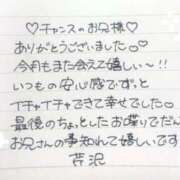 ♡チャンスのお兄様♡
ありがとうございました♡
今月もまた会えて嬉しい〜!!
いつもの安心感でずっと
イチャイチャできて幸せでした
最後のちょっとしたお喋りでだん
お兄さんの事知れて嬉しいです
芹沢